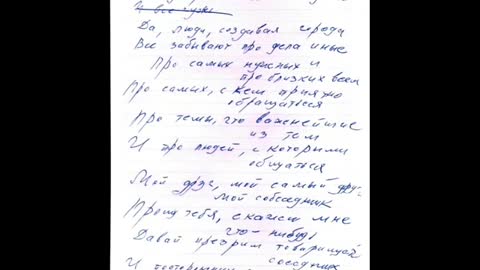 И все чуж
Да, люди, создавая города
Все забывают про дела иные
Про самых нужных и
про близких всем
Про самых, с кем приятно
обращаться
Про темы, что важнейшие
из тем
И про людей, с которыми
общаться
Мой друг, мой самый друг
Мой собеседник
Прошу тебя, скажи мне
что-нибудь
Давай презрим товарищей
соседних
И